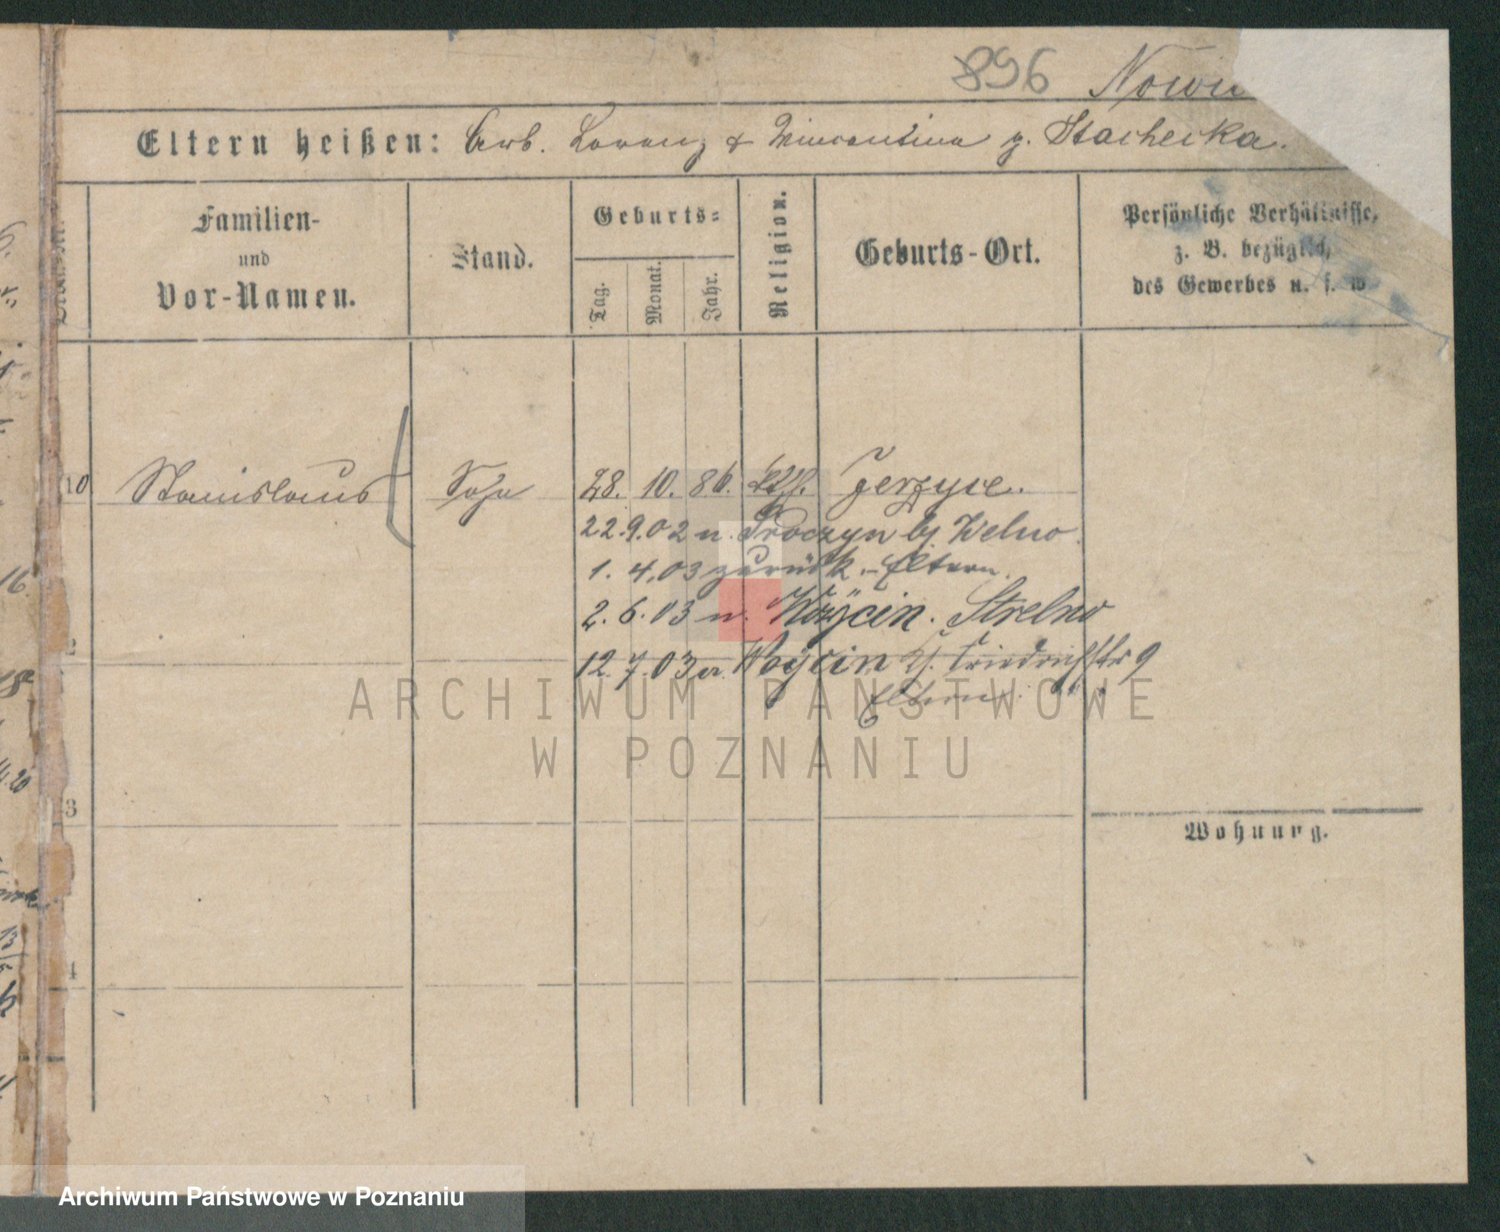 896 Nowic
Eltern heißen: Arb. Lorenz & Vincentina g. Stachecka.
Familien-
und
Vor-Namen.
Stand.
Geburts=
Tag.
Monat.
Jahr.
Religion.
Geburts-Ort.
Persönliche Verhältnisse,
z. B. bezüglich
des Gewerbes u. s. w
10 Stanislaus Sohn 28. 10. 86. kath. Jerzyce.
22.9.02 n. by Welno.
1. 4.03 zurück. Eltern.
2. 6. 03 n. Woycin. Strelno
12. 7. 03 v. Woycin Friedrichstr 9
Eltern.
2
3
4
Wohnung.
16.
ARCHIWUM PAŃSTWOWE
W POZNANIU
Archiwum Państwowe w Poznaniu